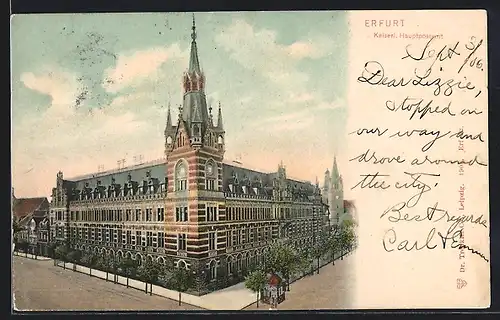 ERFURT
Kaiserl. Hauptpostamt
Sept 5/06.
Dear Lizzie,
stopped on
our way and
drove around
the city.
Best regards
Carl & Emma
Leipzig.